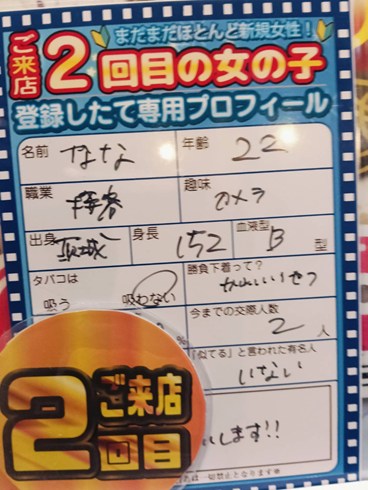 まだまだほとんど新規女性！
ご来店
2回目の女の子
登録したて専用プロフィール
名前 なな 年齢 22
職業 趣味 カメラ
出身 茨城 身長 152 血液型 B 型
タバコは 吸う 吸わない
勝負下着って？ かわいいやつ
今までの交際人数 2 人
%
「似てる」と言われた有名人 いない
します!!
ご来店
2回目
一切禁止となります※